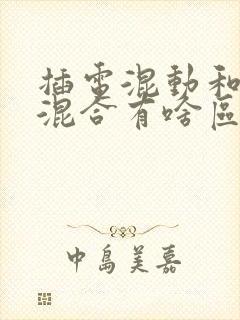 插電混動和
混合有啥區
中島美嘉